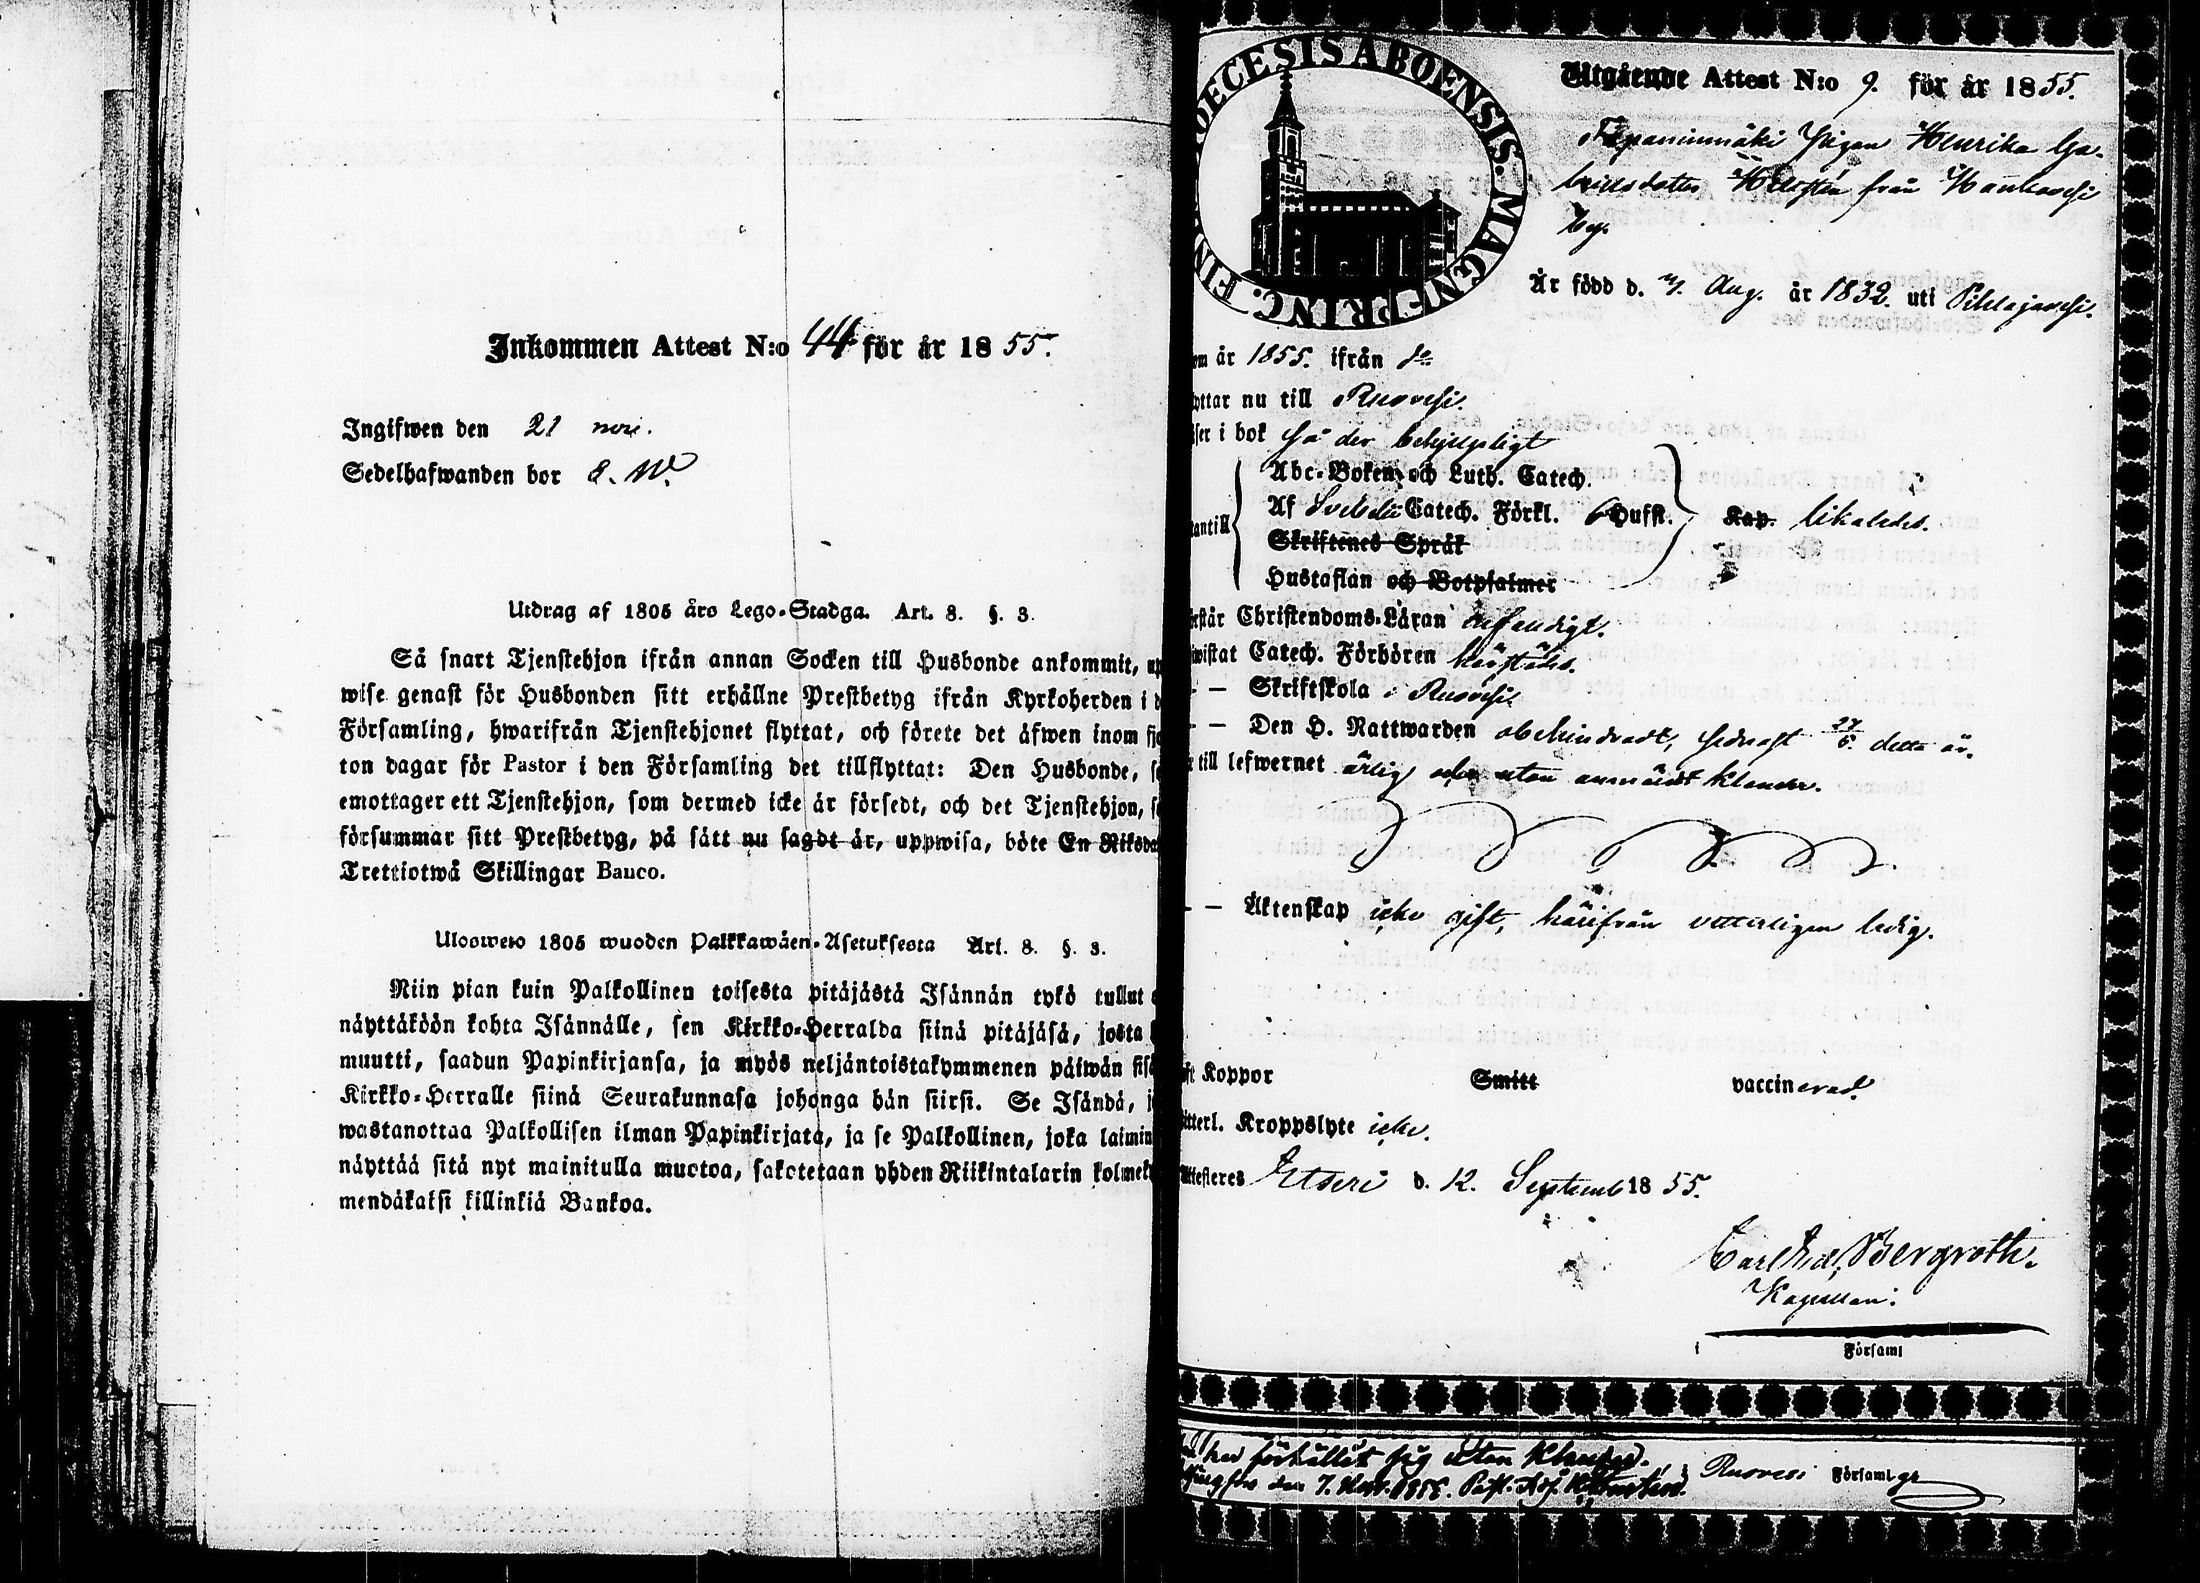 Inkommen Attest N:o 44 för år 1855.
Ingifwen den 21 nov.
Sedelhafwanden bor
Utdrag af 1805 års Lego-Stadga. Art. 8. §. 3.
Så snart Tjenstehjon ifrån annan Socken till Husbonde ankommit,
wise genast för Husbonden sitt erhållne Prestbetyg ifrån Kyrkoherden i
Församling, hwarifrån Tjenstehjonet flyttat, och förete det äfwen inom
ton dagar för Pastor i den Församling det tillflyttat: Den Husbonde,
emottager ett Tjenstehjon, som dermed icke är försedt, och det Tjenstehjon,
försummar sitt Prestbetyg, på sätt nu sagdt är, uppwisa, böte En Riksda
Trettiotwå Skillingar Banco.
Uloswето 1805 wuoden Palkkawäen-Asetuksesta Art. 8. §. 3.
Niin pian kuin Palkollinen toisesta pitäjästä Isännän tykö tullut
näyttäköön kohta Isännälle, sen Kirkko-Herralda siinä pitäjäsä, josta
muutti, saadun Papinkirjansa, ja myös neljäntoistakymmenen päiwän sis
Kirkko-Herralle siinä Seurakunnasa johonga hän siirsi. Se Isändä,
wastanottaa Palkollisen ilman Papinkirjata, ja se Palkollinen, joka laimin
näyttää sitä nyt mainitulla muotoa, sakotetaan yhden Riikintalarin kolmek
mendäkaksi killinkiä Bankoa.
DIOECESIS ABOENSIS. MAGNI PRINC. FIN
Utgående Attest N:o 9. för år 1855.
Pigan Henrika Ga-
brielsdotter från Hankavesi
by.
Är född d. Aug. år 1832. uti Pihlajavesi.
om år 1855. ifrån do
yttar nu till Ruovesi.
ser i bok så der behjelpligt
Abc-Boken och Luth. Catech.
tantill Af Svebelii Catech. Förkl. 6 Hufst. Kap. likaledes.
Skriftenes Språk
Hustaflan och Botpsalmer
rstår Christendoms-Läran enfaldigt.
wistat Catech. Förhören härstädes.
- - Skriftskola i Ruovesi.
- - Den H. Nattwarden obehindradt, sednast 27/5. detta år.
till lefwernet ärlig och utan anmärkt klander.
- - Äktenskap icke gift, härifrån vetterligen ledig.
ft Koppor Smitt vaccinerad.
itterl. Kroppslyte icke.
Attesteres Etseri d. 12. Septemb 1855.
Carl Bergroth.
Kapellan.
i Församl
har förhållit sig utan klander.
den 7. Nov. 1855. Past. i Ruovesi Församlgs